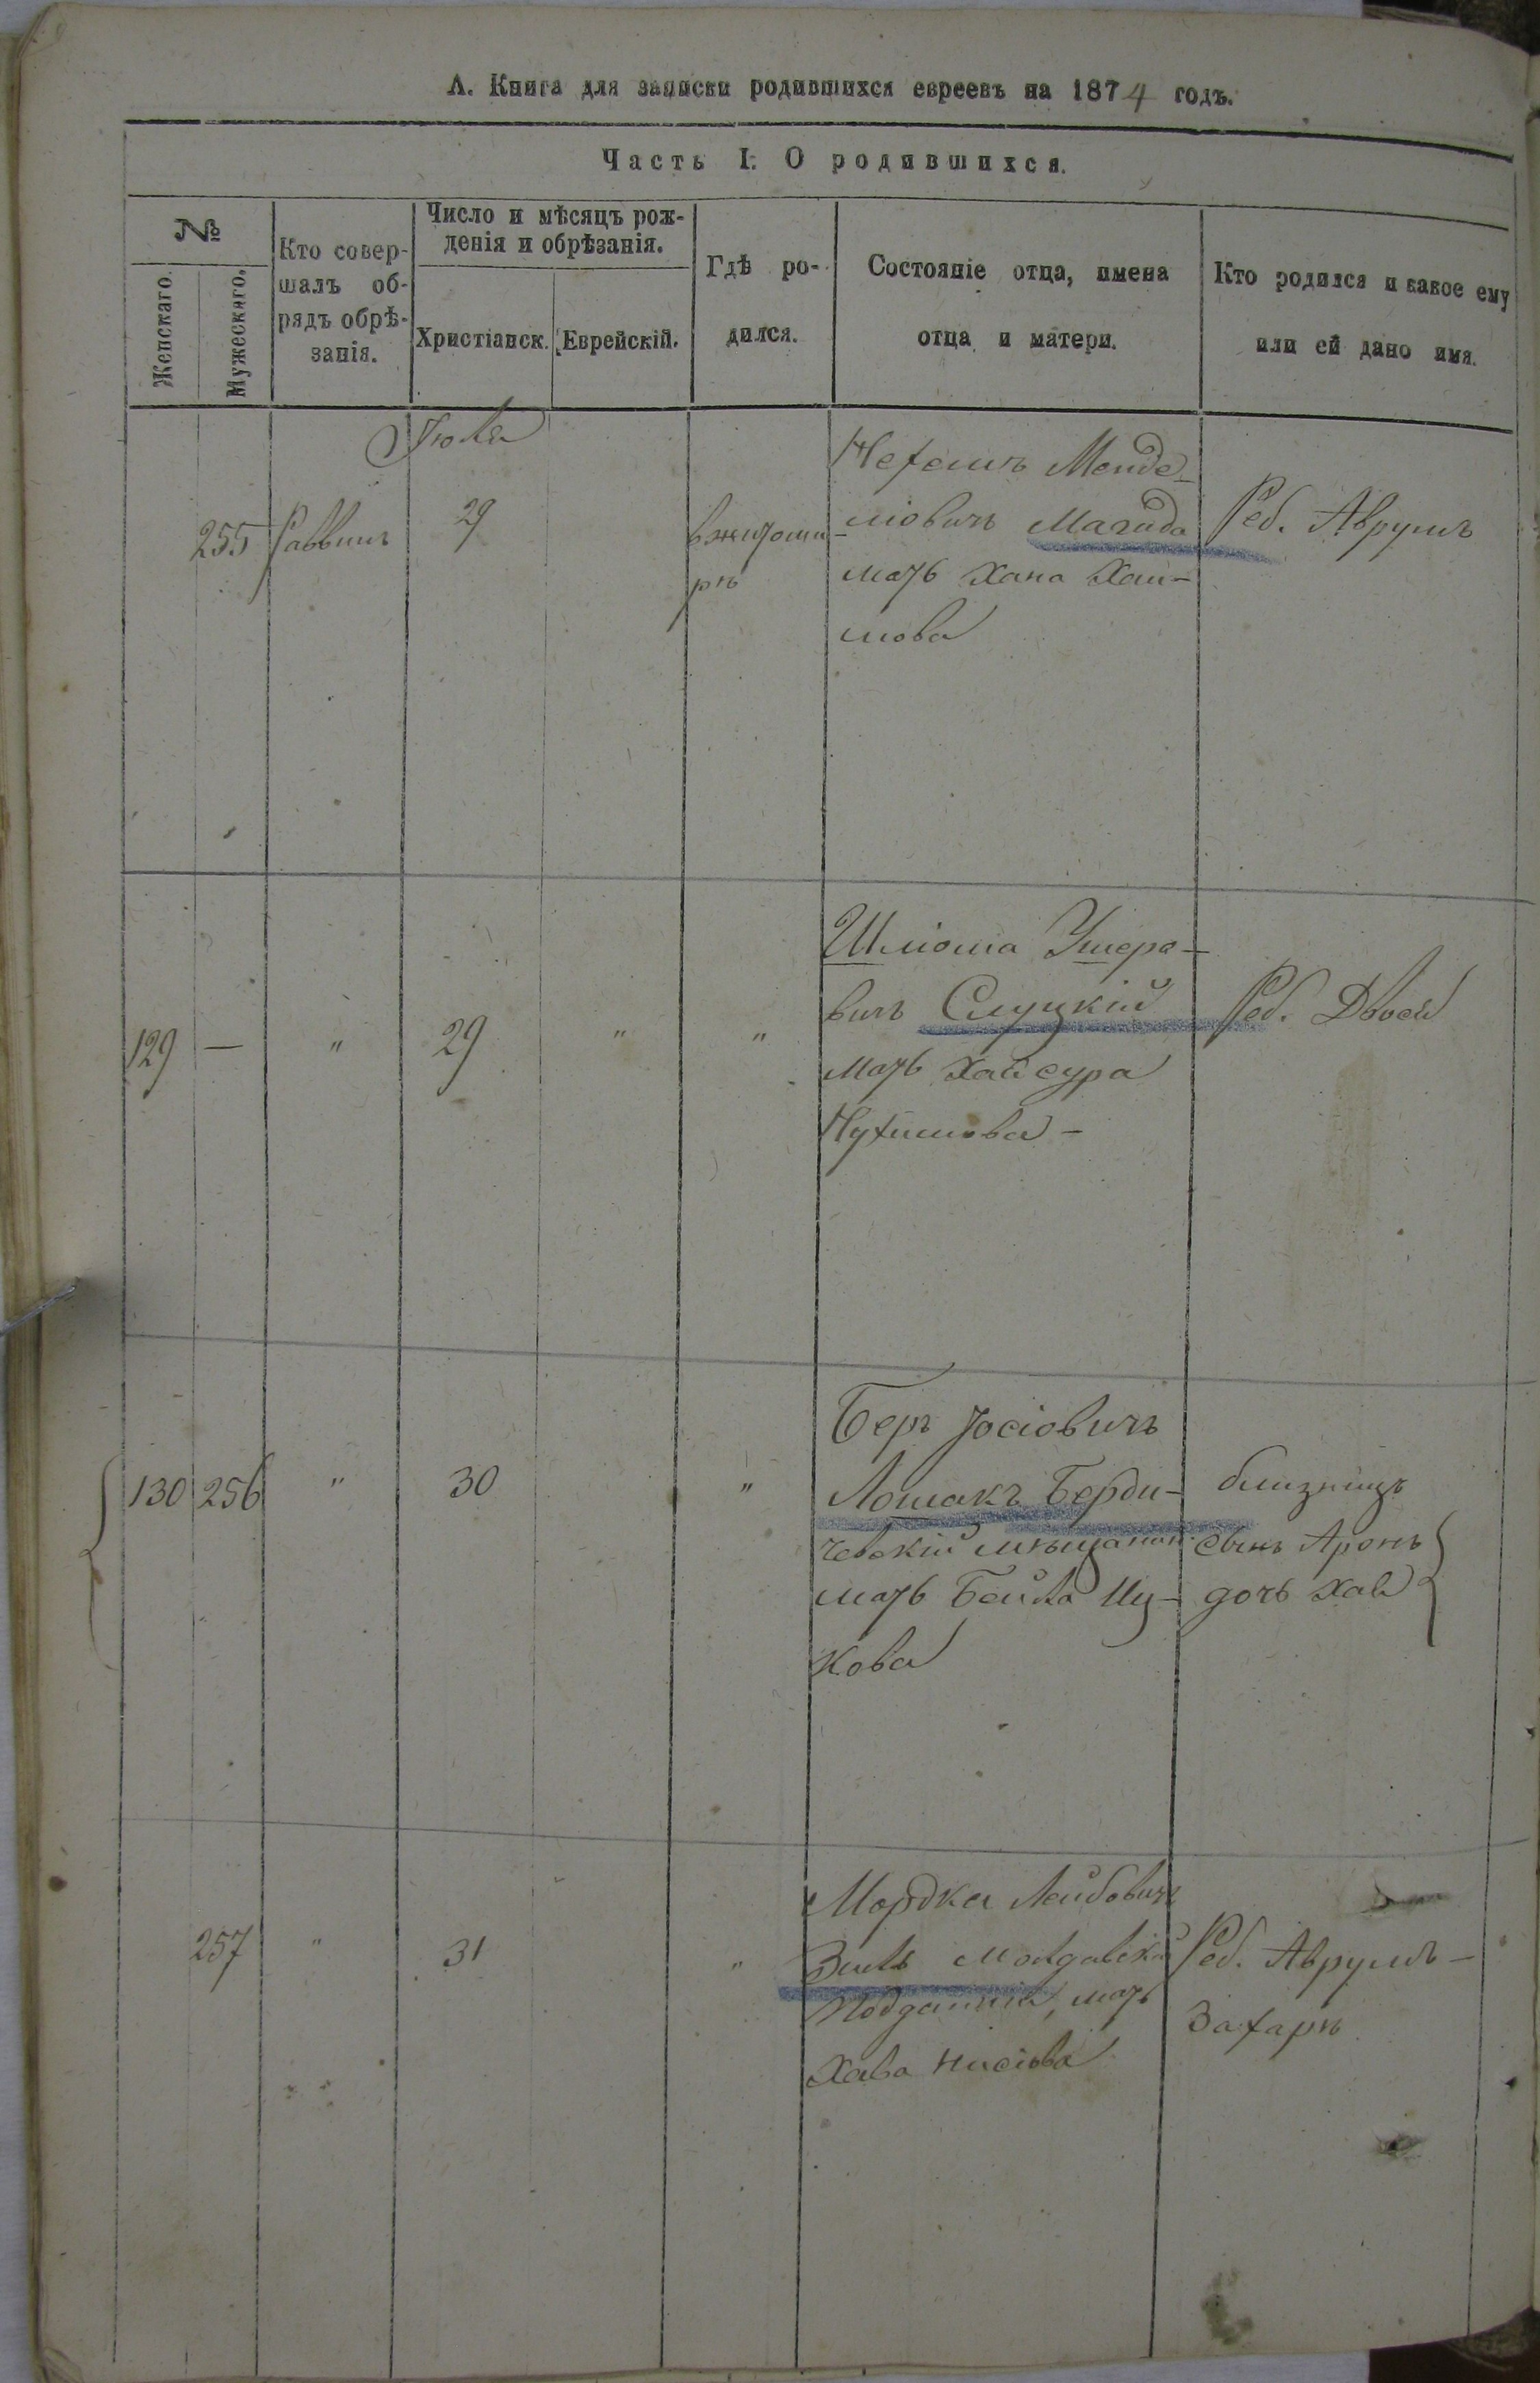 А. Книга для записки родившихся евреевъ на 1874 годъ.
Часть I. О родившихся.
№
Женскаго.
Мужескаго.
Кто совер-
шалъ об-
рядъ обрѣ-
занія.
Число и мѣсяцъ рож-
денія и обрѣзанія.
Христіанск.
Еврейскій.
Гдѣ ро-
дился.
Состояніе отца, имена
отца и матери.
Кто родился и какое ему
или ей дано имя.
Июля
255 Раввинъ 29
в житоми-
рѣ
Нехемъ Менде-
ліовичъ Магида
мать Хана Хаи-
мова
Реб. Аврумъ
129 — " 29 " "
Шліома Ушеро-
вичъ Слуцкій
мать Хайсура
Нухимова -
Реб. Двося
130 256 " 30 "
Беръ Іосіовичъ
Лошакъ Берди-
чевскій мѣщанин
мать Бейла Иц-
кова
близницъ
сынъ Аронъ
дочь Хая
257 " 31 "
Мордка Лейбовичъ
Зиль Молдавскій
Подданный, мать
Хава Нисіова
Реб. Аврумъ -
Захаръ